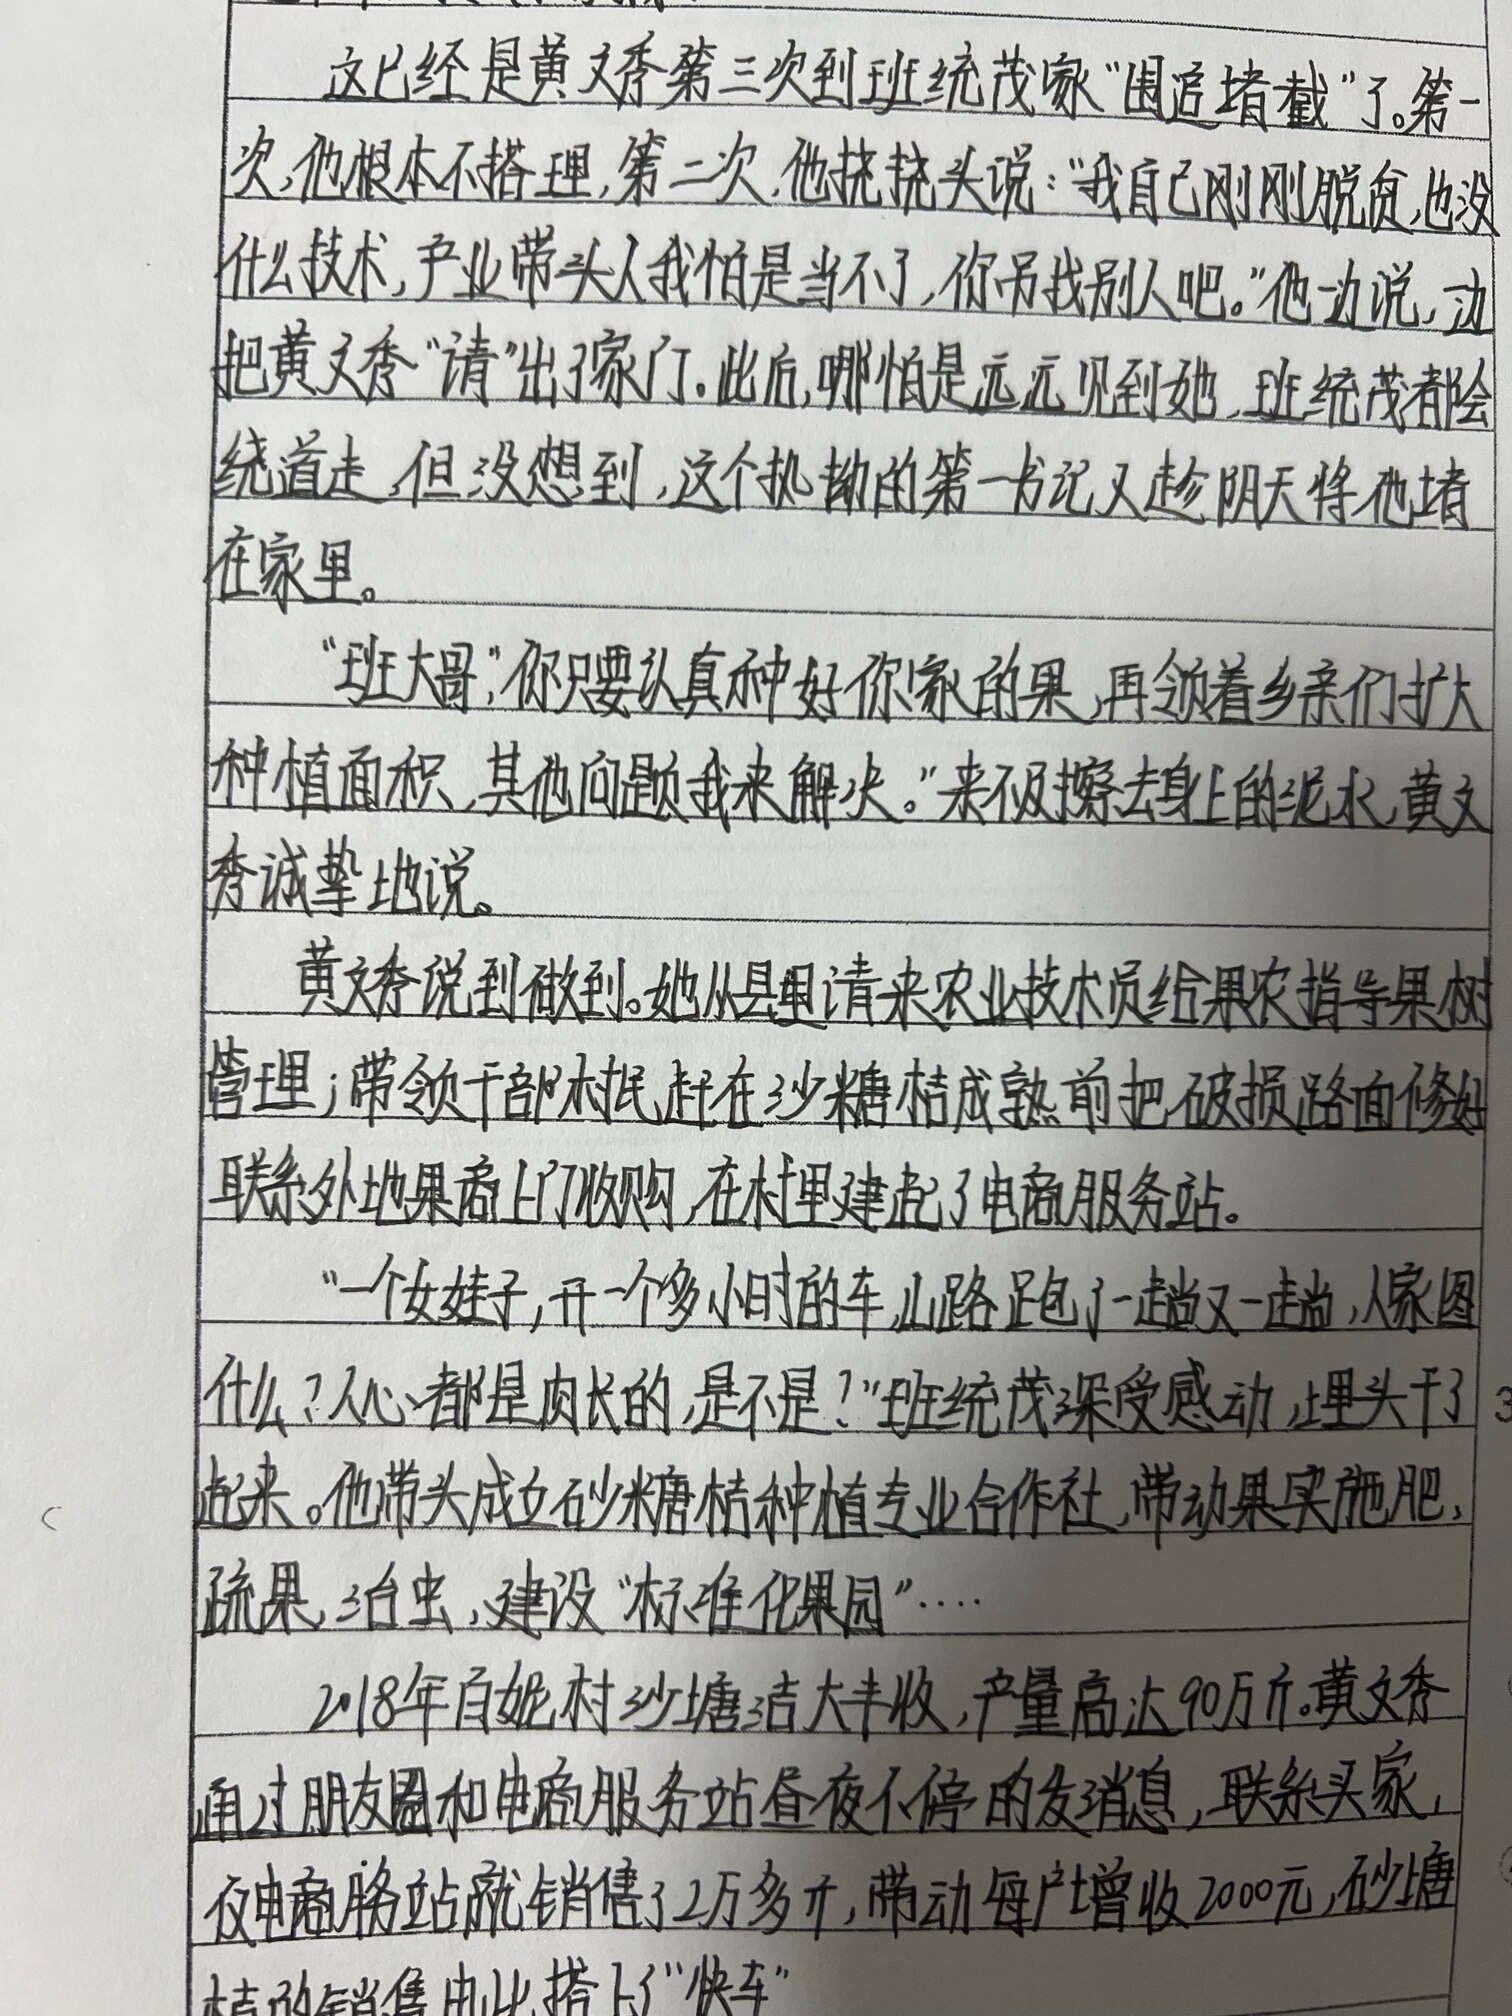 这已经是黄文秀第三次到班统茂家“围追堵截”了。第一
次,他根本不搭理,第二次,他挠挠头说:“我自己刚刚脱贫,也没
什么技术,产业带头人我怕是当不了,你另找别人吧。”他一边说,一边
把黄文秀“请”出了家门。此后,哪怕是远远见到她,班统茂都会
绕道走,但没想到,这个执拗的第一书记又趁阴天将他堵
在家里。
“班大哥”,你只要认真种好你家的果,再领着乡亲们扩大
种植面积,其他问题我来解决。”来不及擦去身上的泥水,黄文
秀诚挚地说。
黄文秀说到做到。她从县里请来农业技术员给果农指导果树
管理;带领干部村民赶在沙糖桔成熟前把破损路面修好
联系外地果商上门收购,在村里建起了电商服务站。
“一个女娃子,开一个多小时的车,山路跑了一趟又一趟,人家图
什么?人心都是肉长的,是不是?”班统茂深受感动,埋头干了
起来。他带头成立砂糖桔种植专业合作社,带动果实施肥,
疏果,治虫,建设“标准化果园”····
2018年百妮村沙塘洁大丰收,产量高达90万斤。黄文秀
通过朋友圈和电商服务站昼夜不停的发消息,联系买家,
仅电商服务站就销售了2万多斤,带动每户增收2000元,砂塘
桔的销售由此搭上了“快车”